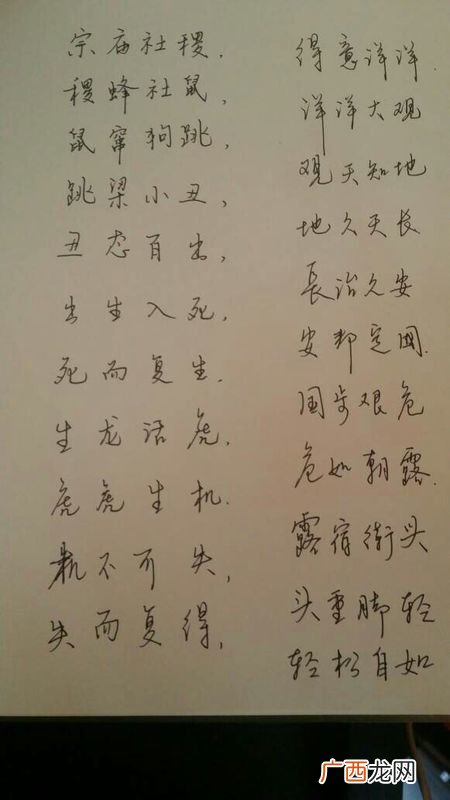 宗庙社稷.
稷蜂社鼠,
鼠窜狗跳,
跳梁小丑,
丑态百出,
出生入死,
死而复生.
生龙活虎.
虎虎生机.
机不可失,
失而复得,
得意洋洋.
洋洋大观
观天知地
地久天长
長治久安
安邦定国.
国步艰危
危如朝露.
露宿街头
头重脚轻
轻松自如
广西龙网